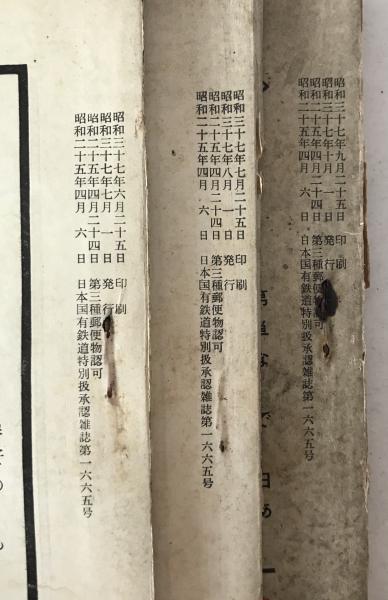 昭和三十七年九月二十五日 印刷
昭和三十七年十月 一日 発行
昭和二十五年四月二十四日 第三種郵便物認可
昭和二十五年四月 六 日 日本国有鉄道特別扱承認雑誌第一六六五号
昭和三十七年七月二十五日 印刷
昭和三十七年八月 一日 発行
昭和二十五年四月二十四日 第三種郵便物認可
昭和二十五年四月 六 日 日本国有鉄道特別扱承認雑誌第一六六五号
昭和三十七年六月二十五日 印刷
昭和三十七年七月 一日 発行
昭和二十五年四月二十四日 第三種郵便物認可
昭和二十五年四月 六 日 日本国有鉄道特別扱承認雑誌第一六六五号